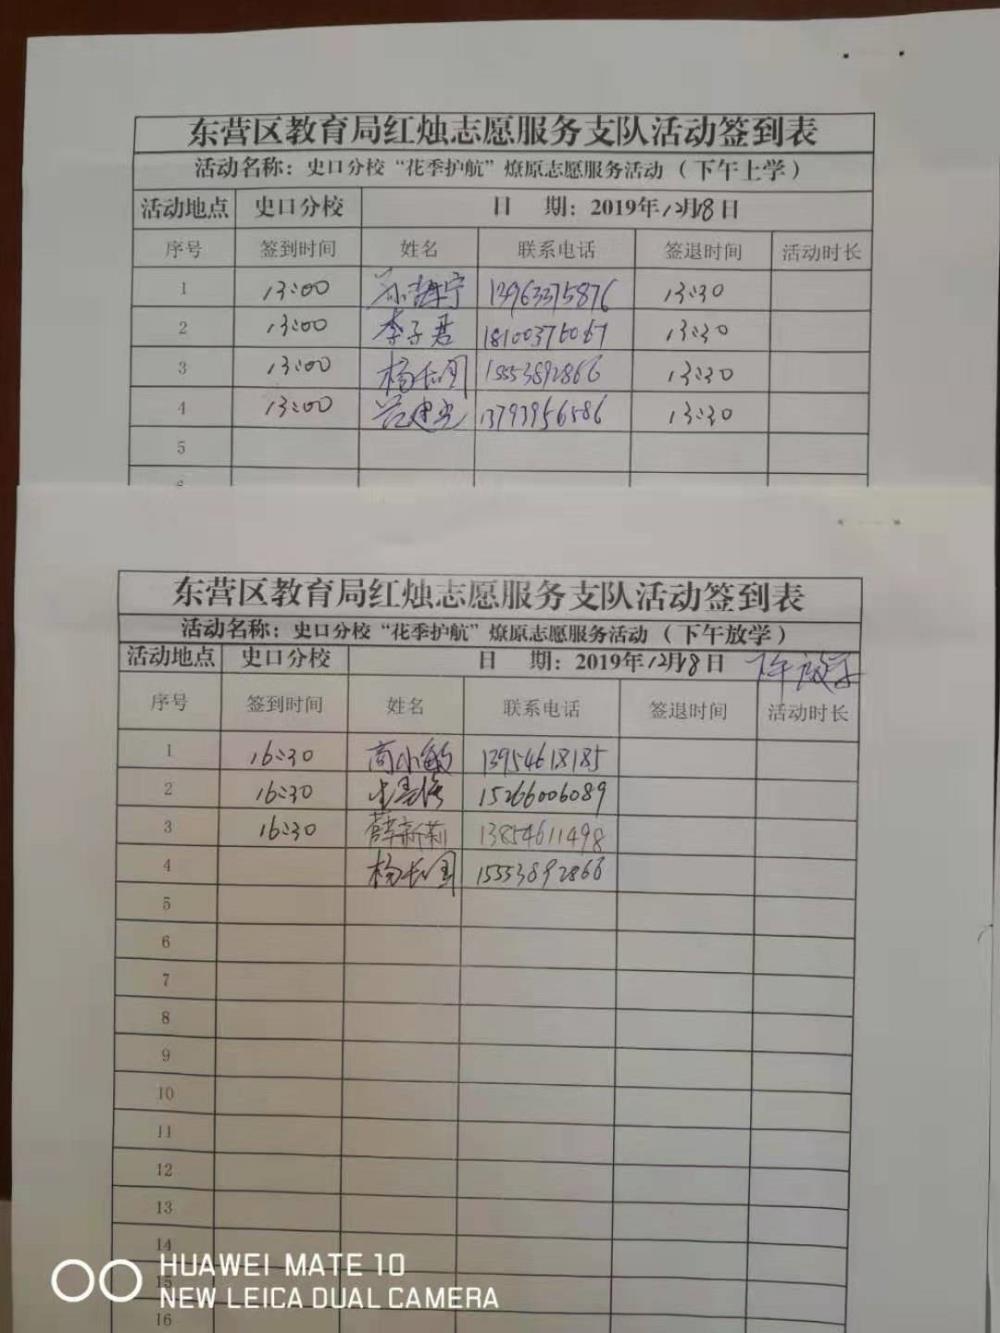 东营区教育局红烛志愿服务支队活动签到表
活动名称：史口分校“花季护航”燎原志愿服务活动（下午上学）
活动地点 史口分校 日 期：2019年12月18日
序号 签到时间 姓名 联系电话 签退时间 活动时长
1 13:00 13963375876 13:30
2 13:00 李子君 18100376067 13:30
3 13:00 杨长国 15553892866 13:30
4 13:00 13793956586 13:30
5
6
东营区教育局红烛志愿服务支队活动签到表
活动名称：史口分校“花季护航”燎原志愿服务活动（下午放学）
活动地点 史口分校 日 期：2019年12月18日 下午放学
序号 签到时间 姓名 联系电话 签退时间 活动时长
1 16:30 高小敏 13954618185
2 16:30 15266006089
3 16:30 薛新莉 13854611498
4 杨长国 15553892866
5
6
7
8
9
10
11
12
13
14
15
16
HUAWEI MATE 10
NEW LEICA DUAL CAMERA